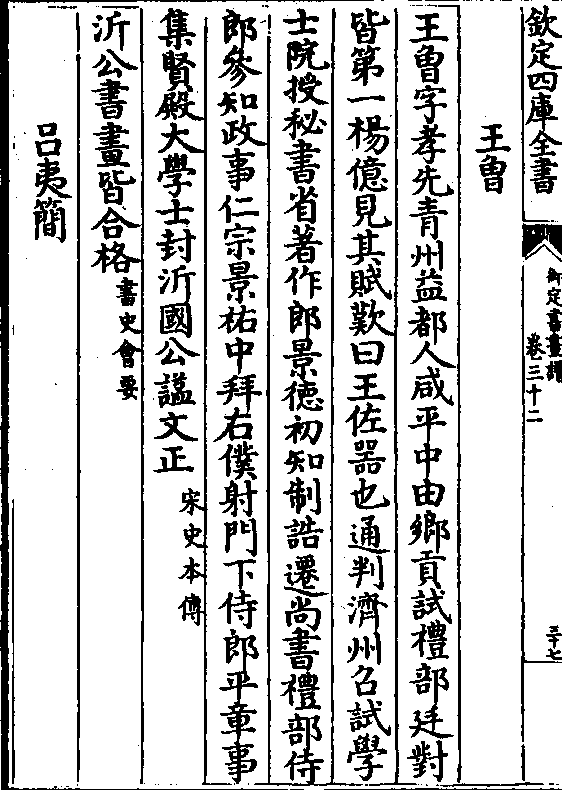 欽定四庫全書
御定書畫譜
卷三十二
三十七
王曾
王曾字孝先青州益都人咸平中由鄉貢試禮部廷對
皆第一楊億見其賦歎曰王佐器也通判濟州召試學
士院授秘書省著作郎景徳初知制誥遷尚書禮部侍
郎參知政事仁宗景祐中拜右僕射門下侍郎平章事
集賢殿大學士封沂國公諡文正宋史本傳
沂公書畫皆合格書史會要
呂夷簡